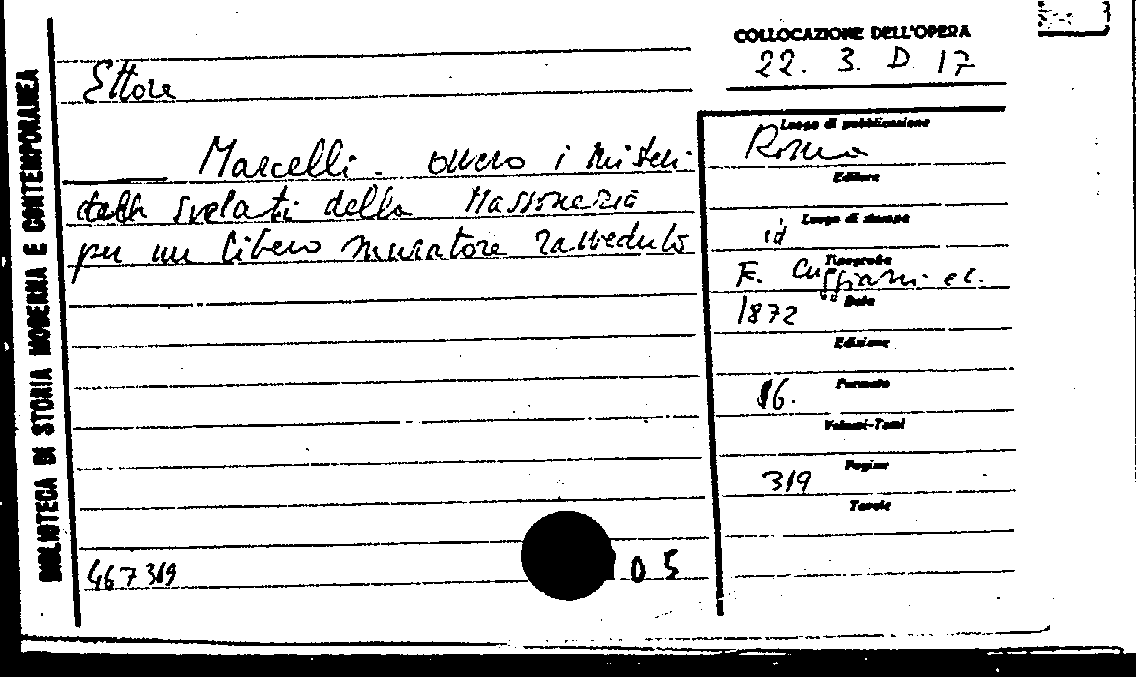 BIBLIOTECA DI STORIA MODERNA E CONTEMPORANEA
COLLOCAZIONE DELL'OPERA
22. 3. D 17
Ettore
Marcelli. ovvero i misteri
svelati della Massoneria
per un libero muratore ravveduto
467319
05
Luogo di pubblicazione
Roma
Editore
Luogo di stampa
id
Tipografo
F. Cuggiani e c.
Data
1872
Edizione
Formato
16.
Volumi-Tomi
Pagine
319
Tavole